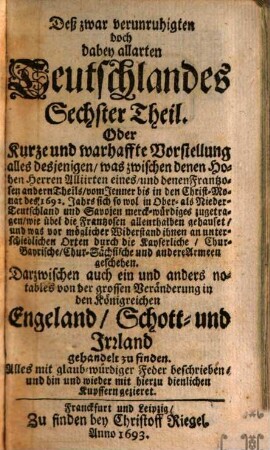 Deß zwar verunruhigten
doch
dabey allarten
Teutschlandes
Sechster Theil.
Oder
Kurze und warhaffte Vorstellung
alles desjenigen/ was zwischen denen Ho-
hen Herren Alliirten eines/ und denen Frantzo-
sen andern Theils/ vom Jenner bis in den Christ-Mo-
nat deß 1692. Jahrs sich so wol in Ober- als Nieder-
Teutschland und Savoien merck-würdiges zugetra-
gen/ wie übel die Frantzosen allenthalben gehauset/
und was vor möglicher Widerstand ihnen an unter-
schiedlichen Orten durch die Kayserliche/ Chur-
Bayrische/ Chur-Sächsische und andere Armeen
geschehen.
Darzwischen auch ein und anders no-
tables von der grossen Veränderung in
den Königreichen
Engeland/ Schott- und
Irrland
gehandelt zu finden.
Alles mit glaub-würdiger Feder beschrieben/
und hin und wieder mit hierzu dienlichen
Kupffern gezieret.
Franckfurt und Leipzig/
Zu finden bey Christoff Riegel.
Anno 1693.